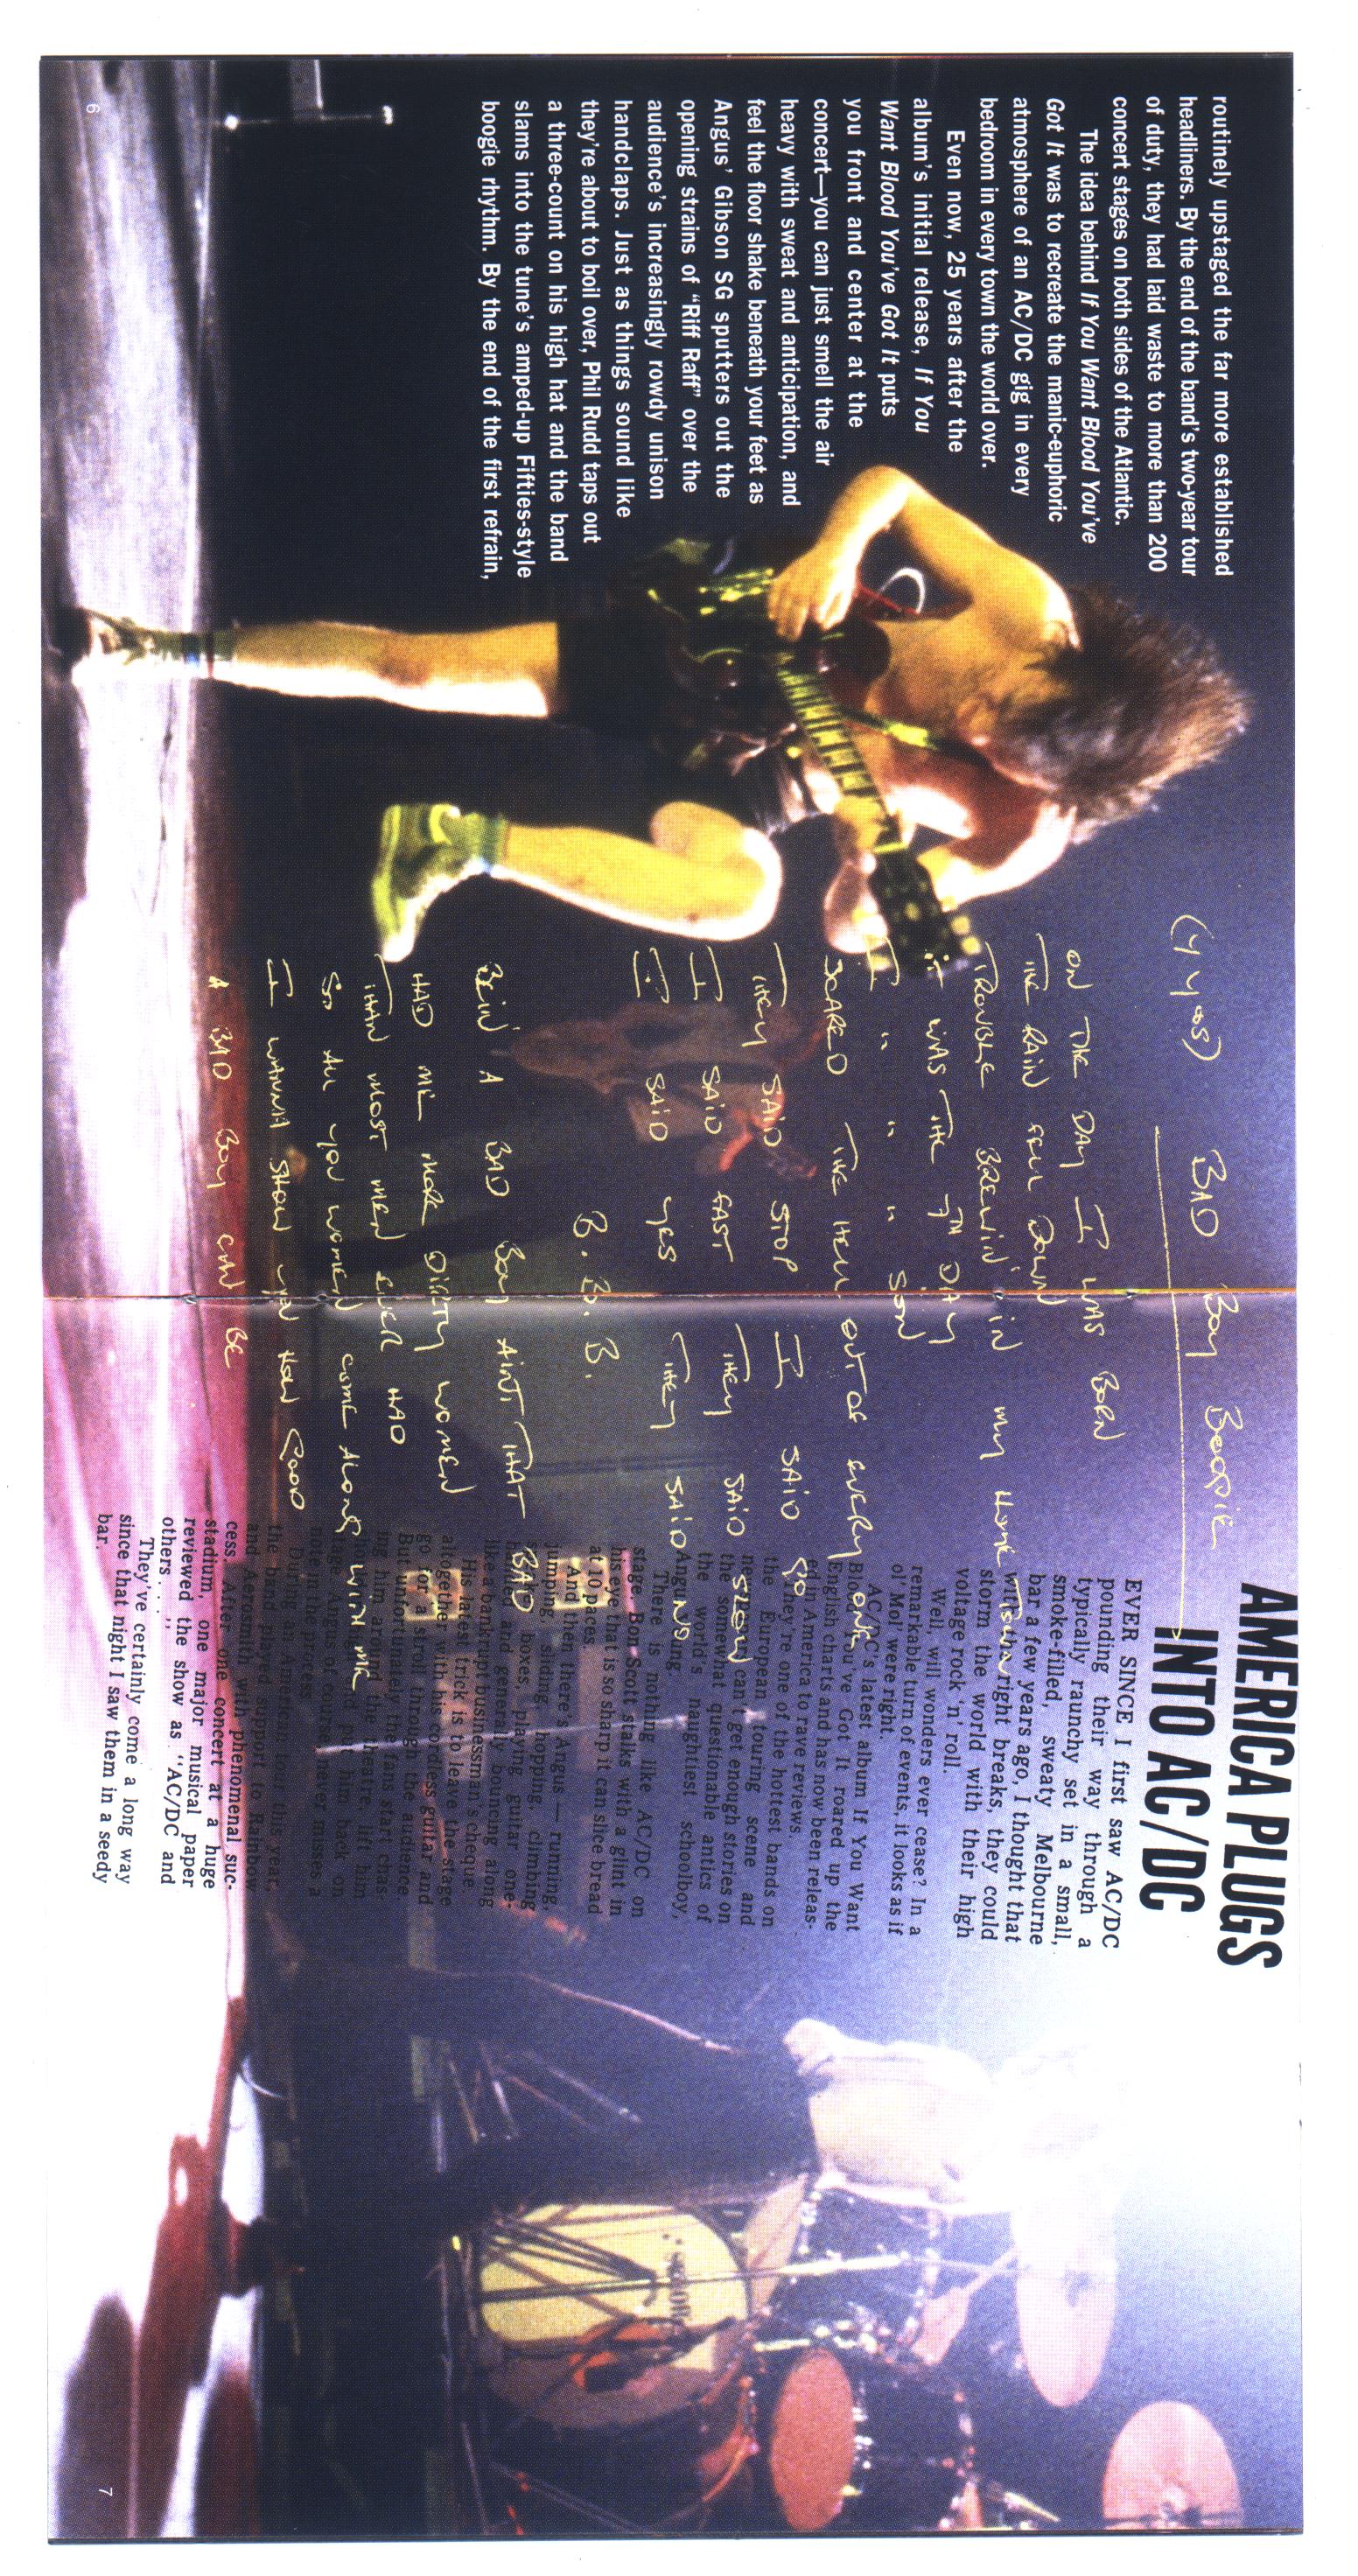 routinely upstaged the far more established
headliners. By the end of the band's two-year tour
of duty, they had laid waste to more than 200
concert stages on both sides of the Atlantic.
The idea behind If You Want Blood You've
Got It was to recreate the manic-euphoric
atmosphere of an AC/DC gig in every
bedroom in every town the world over.
Even now, 25 years after the
album's initial release, If You
Want Blood You've Got It puts
you front and center at the
concert—you can just smell the air
heavy with sweat and anticipation, and
feel the floor shake beneath your feet as
Angus' Gibson SG sputters out the
opening strains of "Riff Raff" over the
audience's increasingly rowdy unison
handclaps. Just as things sound like
they're about to boil over, Phil Rudd taps out
a three-count on his high hat and the band
slams into the tune's amped-up Fifties-style
boogie rhythm. By the end of the first refrain,
6
BAD BOY BOOGIE
ON THE DAY I WAS BORN
THE RAIN FELL DOWN
TROUBLE BREWIN' IN MY HOME TOWN
IT WAS THE 7TH DAY
I " " " SON
SCARED THE HELL OUT OF EVERYONE
THEY SAID STOP I SAID GO
I SAID FAST THEY SAID SLOW
I SAID YES THEY SAID NO
B. B. B.
BEIN' A BAD BOY AINT THAT BAD
HAD ME MORE DIRTY WOMEN
THAN MOST MEN EVER HAD
SO ALL YOU WOMEN COME ALONG WITH ME
I WANNA SHOW YOU HOW GOOD
A BAD BOY CAN BE
AMERICA PLUGS
INTO AC/DC
EVER SINCE I first saw AC/DC
pounding their way through a
typically raunchy set in a small,
smoke-filled, sweaty Melbourne
bar a few years ago, I thought that
with the right breaks, they could
storm the world with their high
voltage rock 'n' roll.
Well, will wonders ever cease? In a
remarkable turn of events, it looks as if
ol' Mol' were right.
AC/DC's latest album If You Want
Blood You've Got It roared up the
English charts and has now been releas-
ed in America to rave reviews.
They're one of the hottest bands on
the European touring scene and
can't get enough stories on
the somewhat questionable antics of
the world's naughtiest schoolboy,
Angus Young.
There is nothing like AC/DC on
stage. Bon Scott stalks with a glint in
his eye that is so sharp it can slice bread
at 10 paces.
And then there's Angus — running,
jumping, sliding, hopping, climbing
boxes, playing guitar one-
handed and generally bouncing along
like a bankrupt businessman's cheque.
His latest trick is to leave the stage
altogether with his cordless guitar and
go for a stroll through the audience.
But unfortunately the fans start chas-
ing him around the theatre, lift him
and put him back on
stage. Angus of course never misses a
note in the process.
During an American tour this year,
the band played support to Rainbow
and Aerosmith with phenomenal suc-
cess. After one concert at a huge
stadium, one major musical paper
reviewed the show as "AC/DC and
others . . ."
They've certainly come a long way
since that night I saw them in a seedy
bar.
7